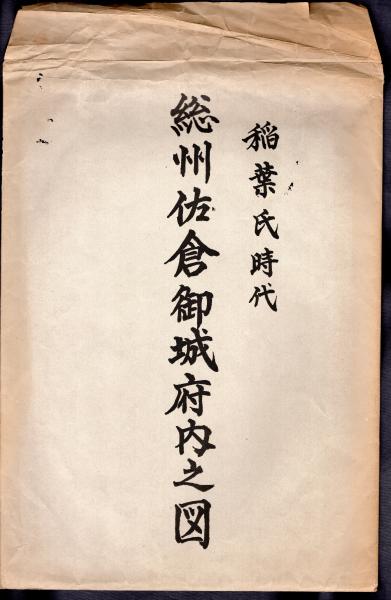 稲葉氏時代
総州佐倉御城府内之図